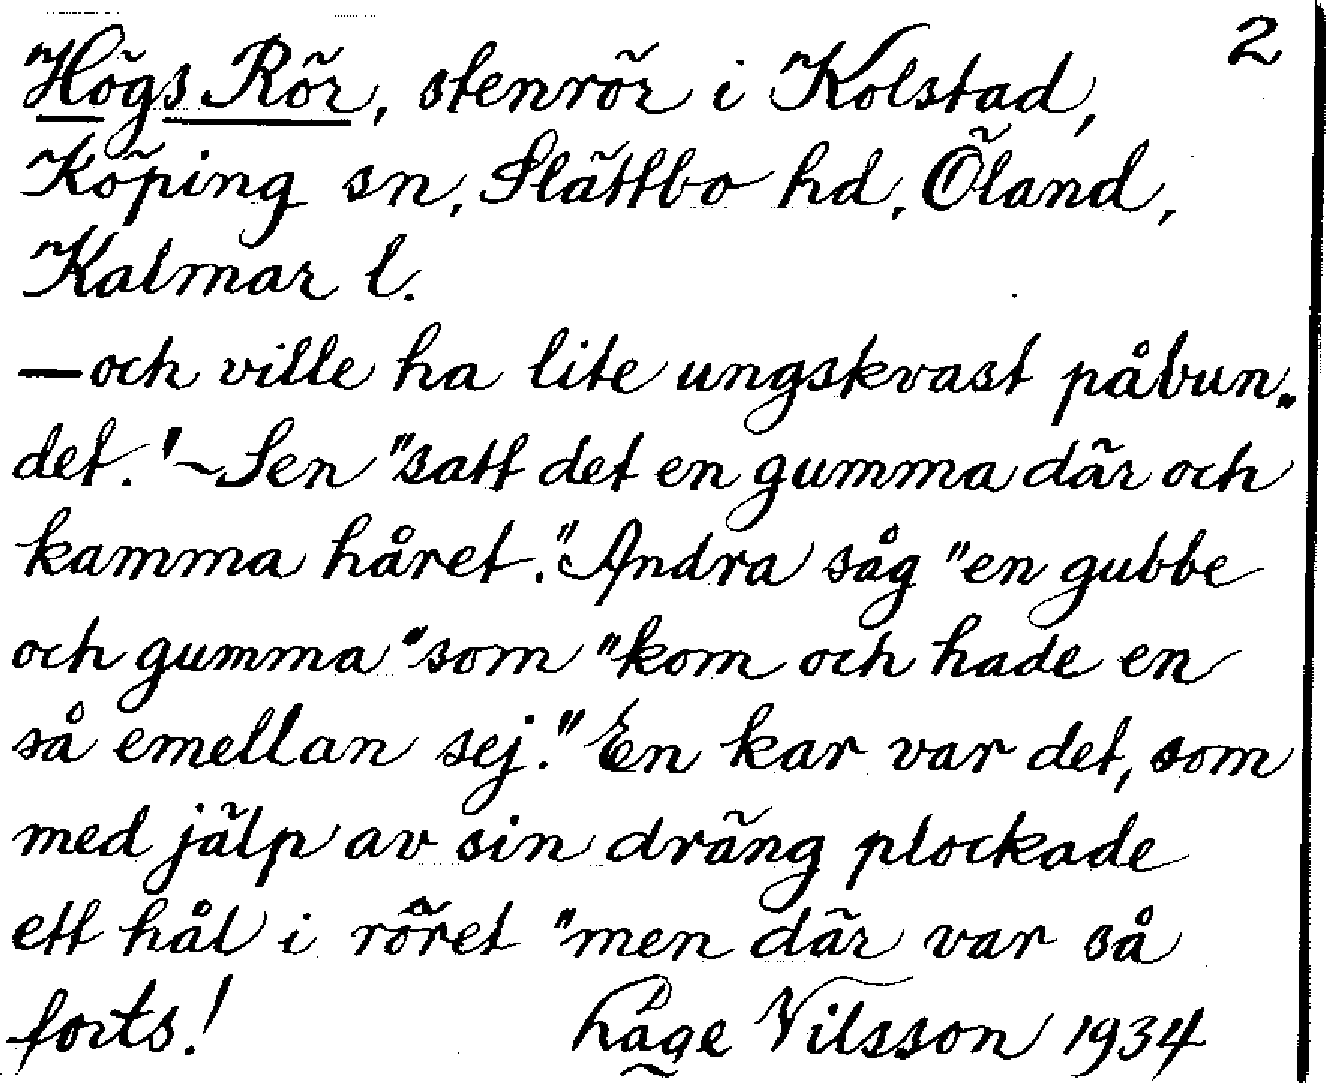 2
Högs Rör, stenrör i Kolstad,
Köping sn, Slättbo hd, Öland,
Kalmar l.
—och ville ha lite ungskvast påbun„
det." ~ Sen "satt det en gumma där och
kamma håret." Andra såg "en gubbe
och gumma" som "kom och hade en
så emellan sej." En kar var det, som
med jälp av sin dräng plockade
ett hål i röret "men där var så
forts! Åge Nilsson 1934